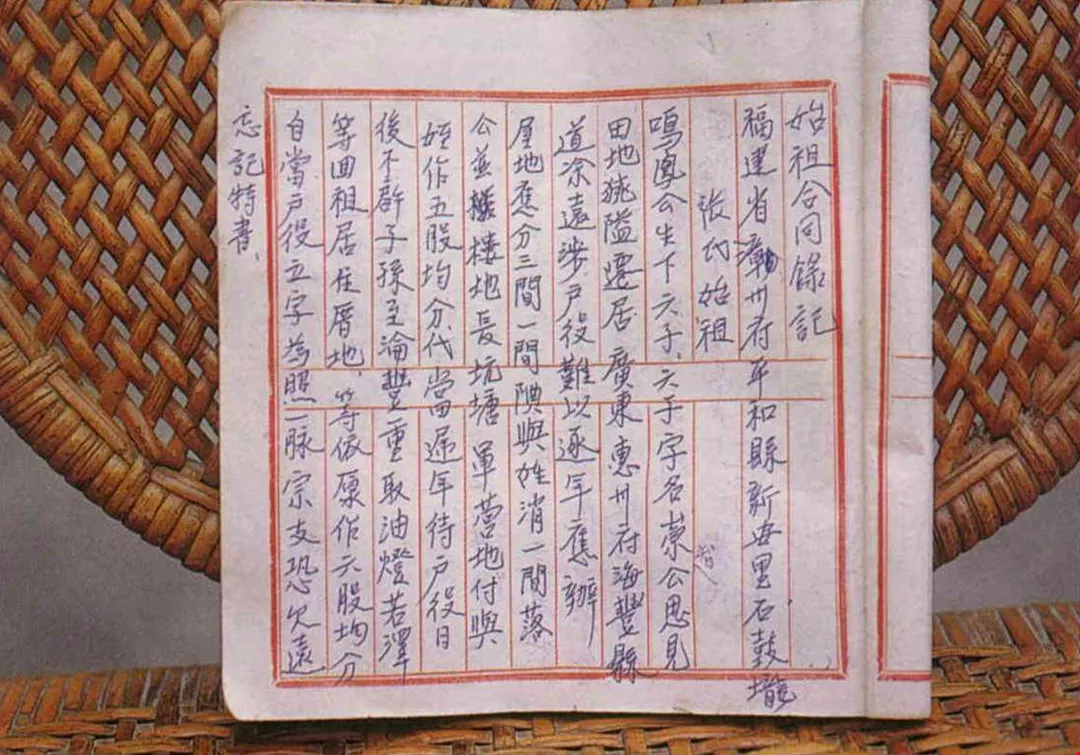 始祖合同錄記
福建省漳州府平和縣新安里石鼓壠
張代始祖
鳴鳳公生下六子、六子字名崇公思見
田地狹隘遷居廣東惠州府海豐縣
道涂遠涉户役難以逐年應辦
屋地應分三間一間與姪消一間落
公並樓地長坑塘軍营地付與
姪作五股均分代當遞年待户役日
後不辟子孫至淪豐重取油燈若澤
等回祖居住厝地、等依原作六股均分
自當户役立字為照一脈宗支恐欠遠
忘記特書、